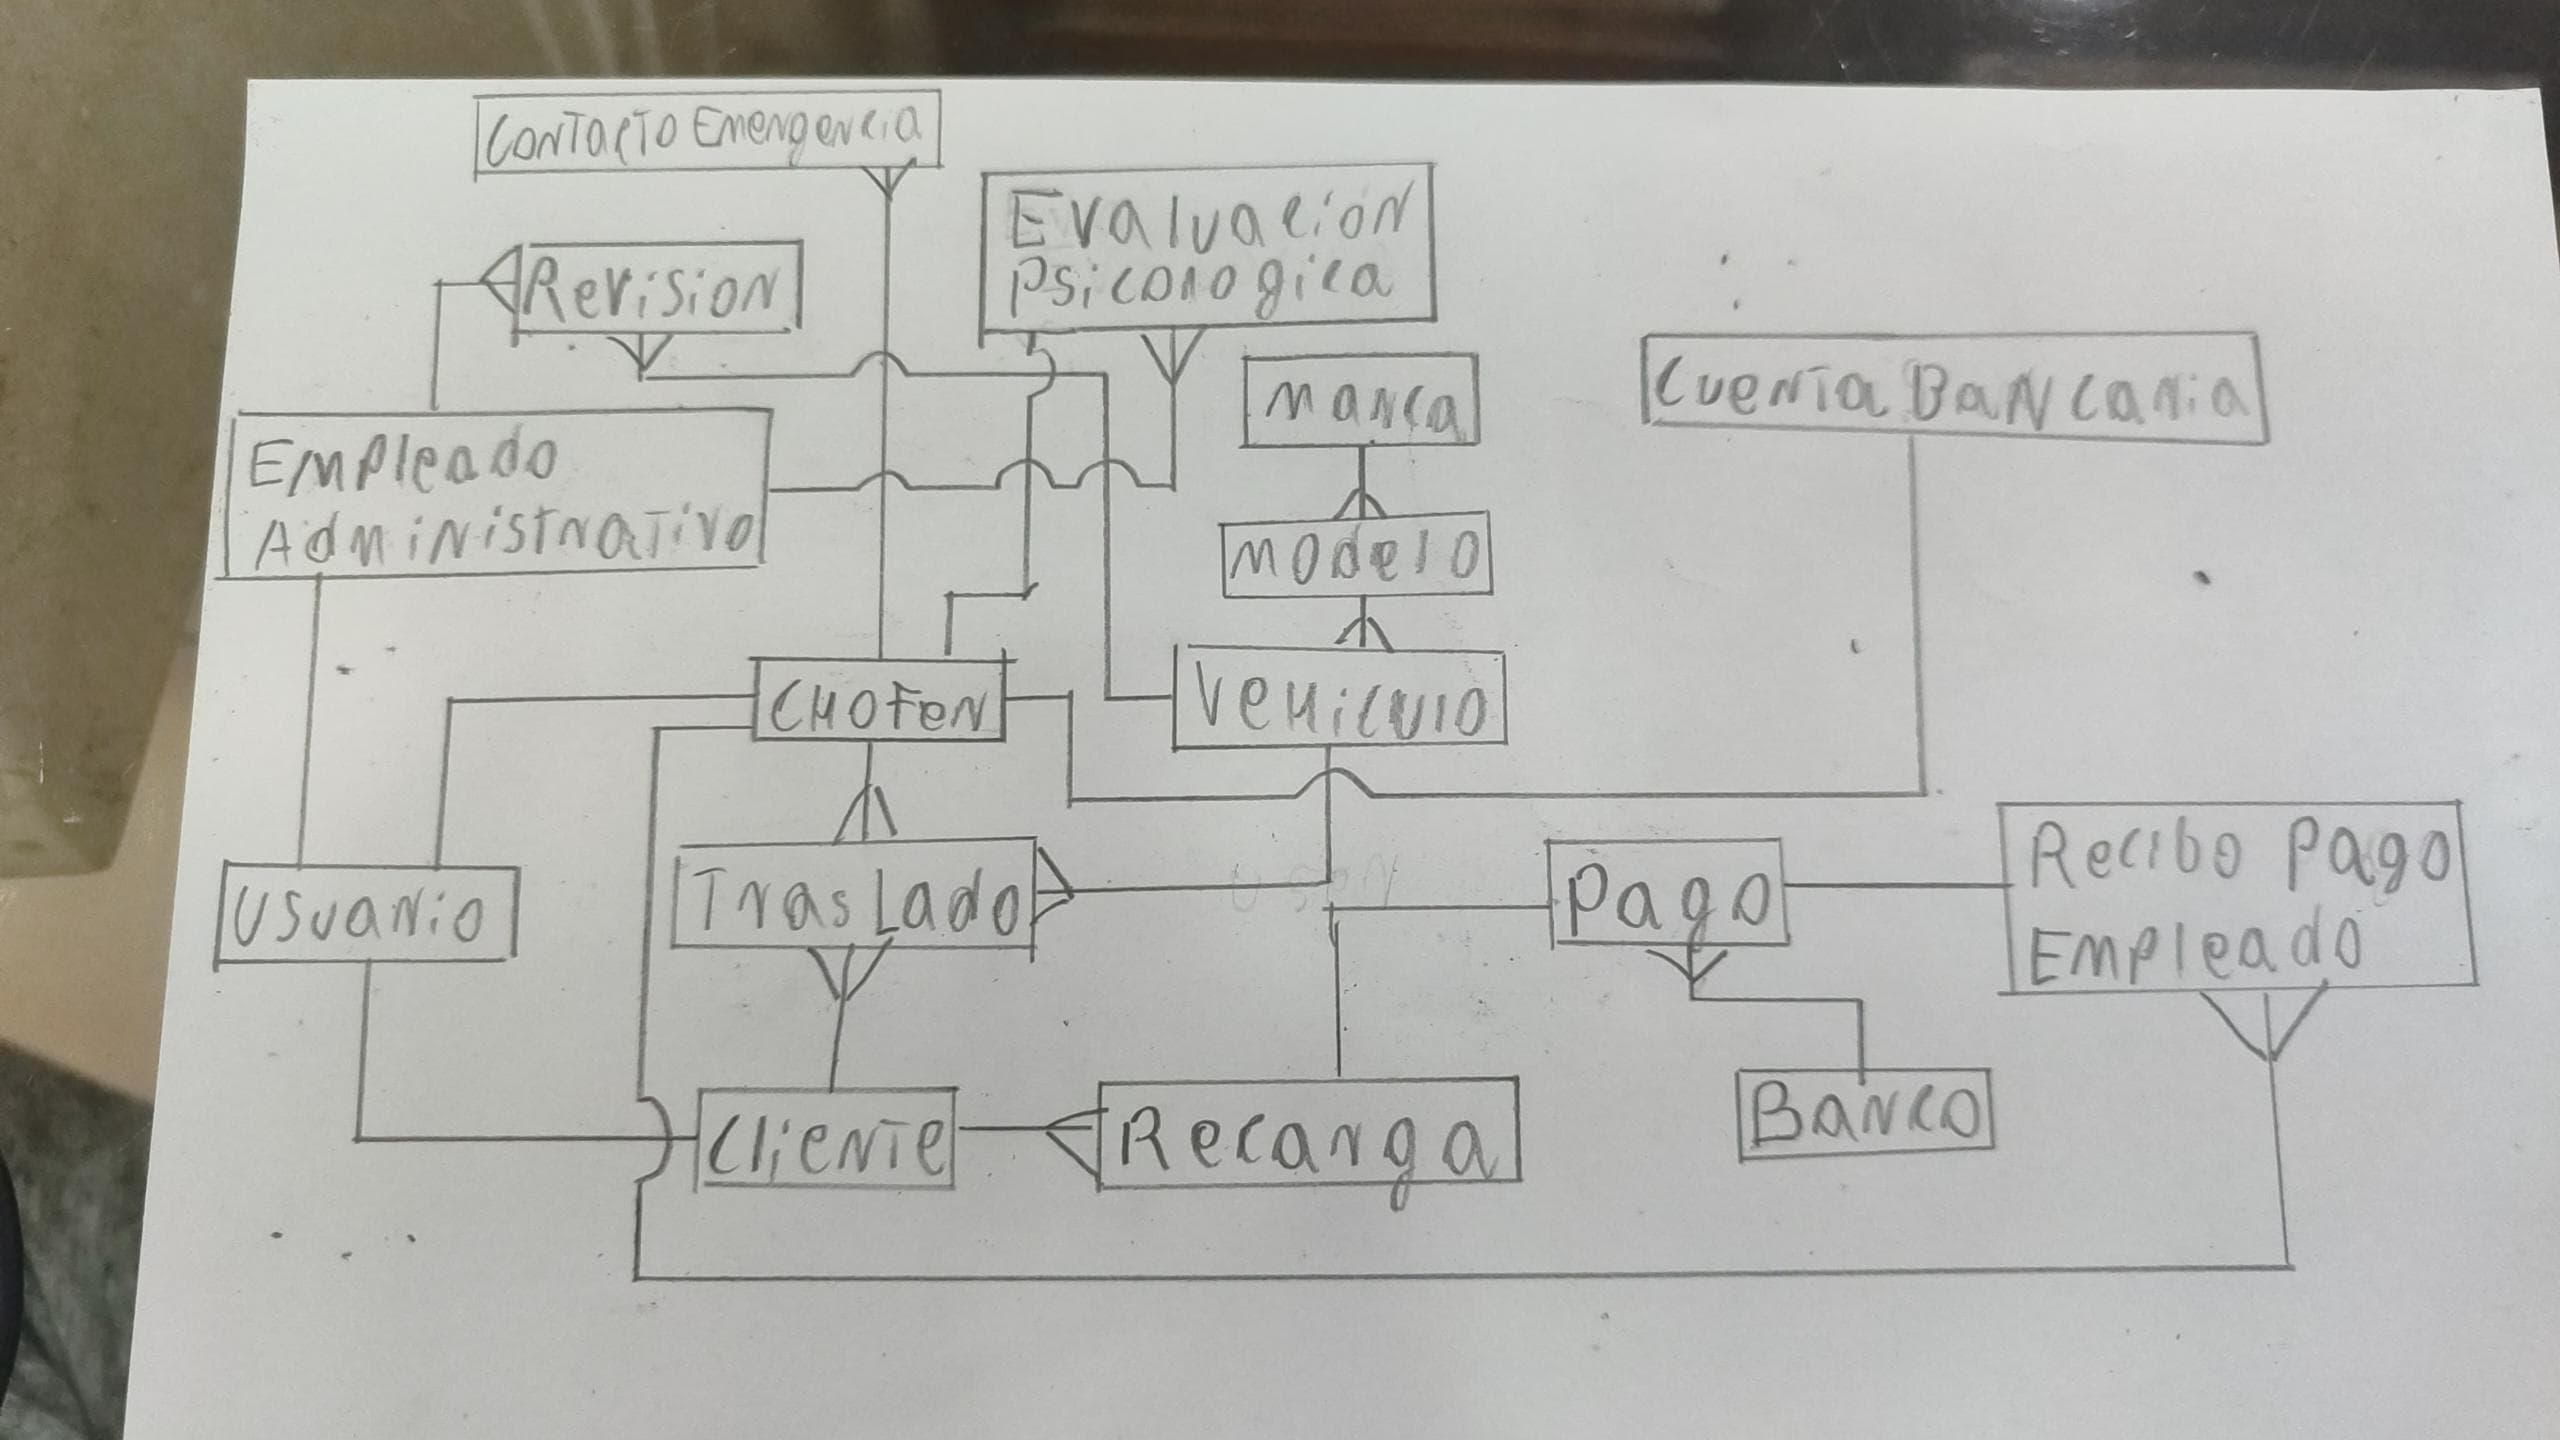 Contacto Emergencia
Evaluacion
Psicologica
Revision
Marca
Cuenta Bancaria
Empleado
Administrativo
Modelo
Chofer
Vehiculo
Usuario
Traslado
Pago
Recibo Pago
Empleado
Cliente
Recarga
Banco